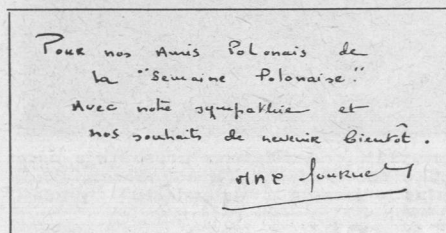 Pour nos Amis Polonais de
la "Semaine Polonaise."
Avec notre sympathie et
nos souhaits de revenir bientôt.